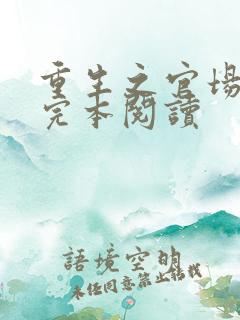 重生之官場
完本閱讀
語境空明
未经同意禁止转载